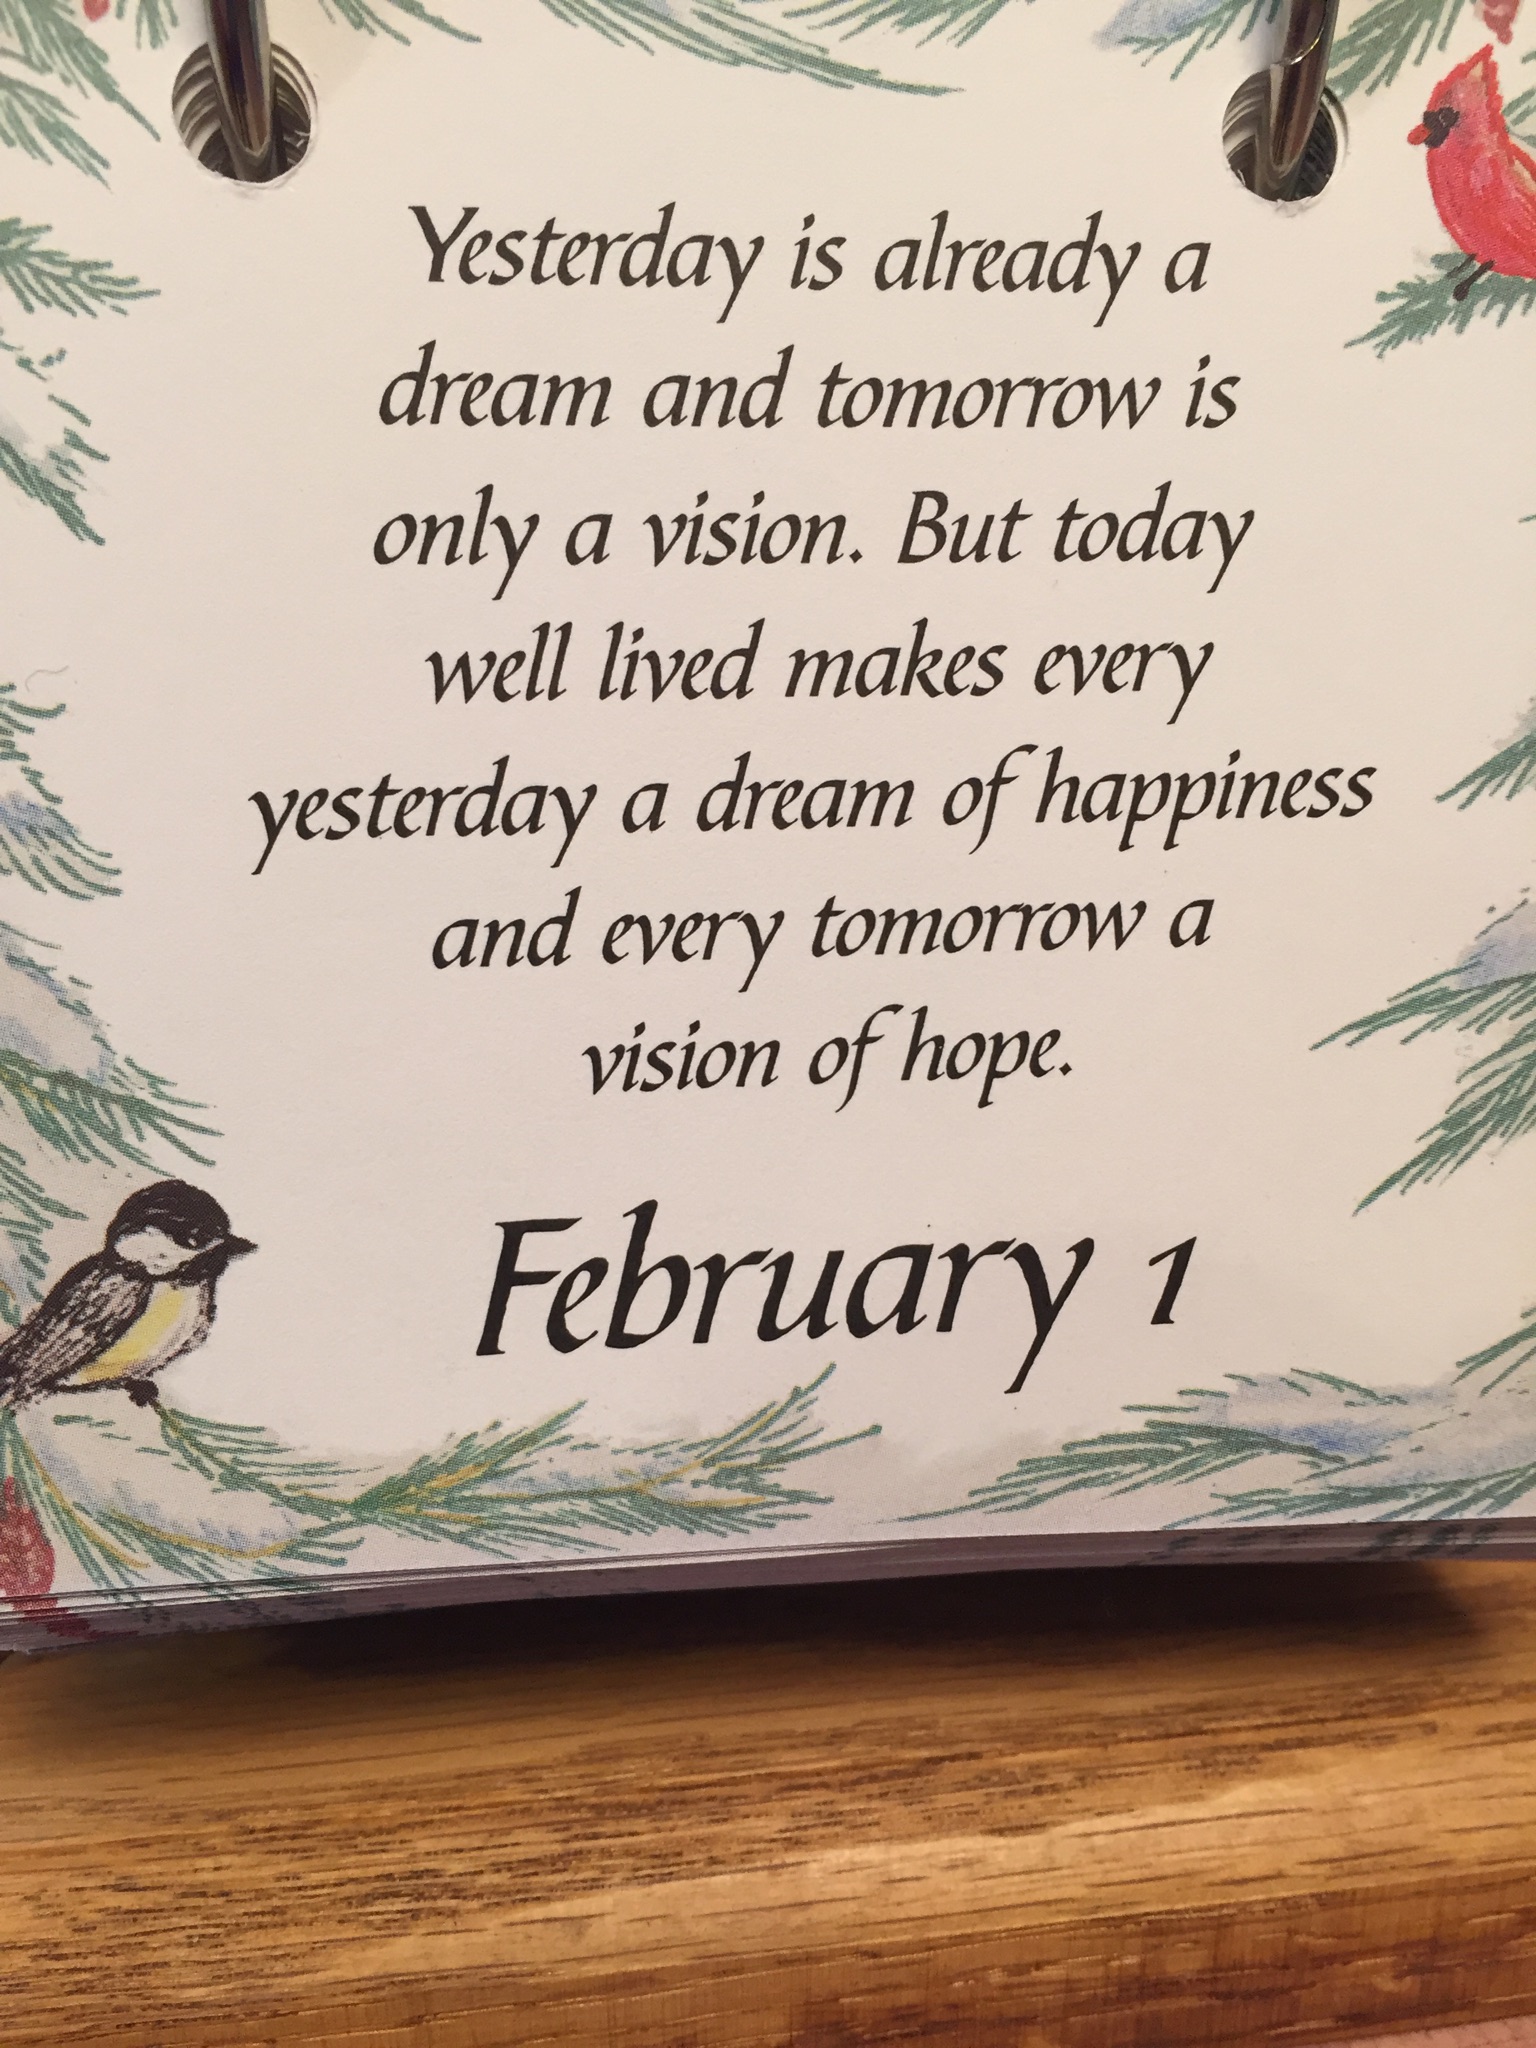 Yesterday is already a
dream and tomorrow is
only a vision. But today
well lived makes every
yesterday a dream of happiness
and every tomorrow a
vision of hope.
February 1